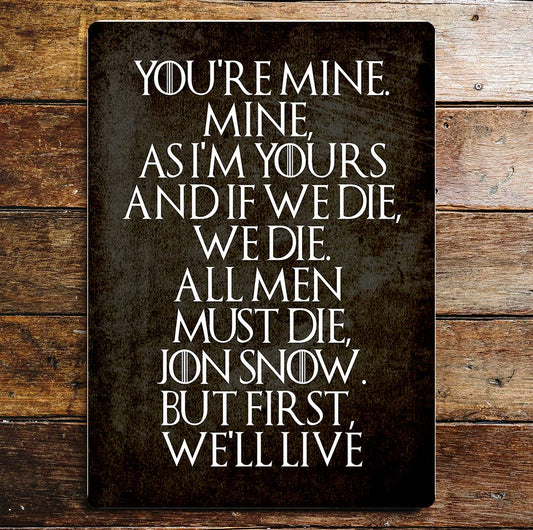 YOU'RE MINE.
MINE,
AS I'M YOURS
AND IF WE DIE,
WE DIE.
ALL MEN
MUST DIE,
JON SNOW.
BUT FIRST,
WE'LL LIVE